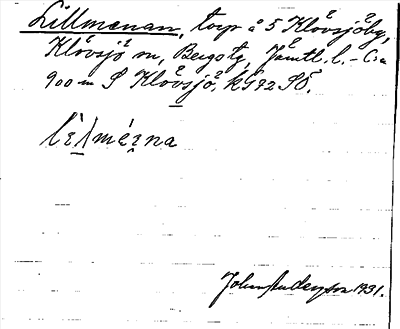 Lillmenan, torp å 5 Klövsjöby,
Klövsjö sn, Bergs tg, Jämtl. l. - C:a
900 m S Klövsjö. kG92 SÖ.
John Anderson 1931.